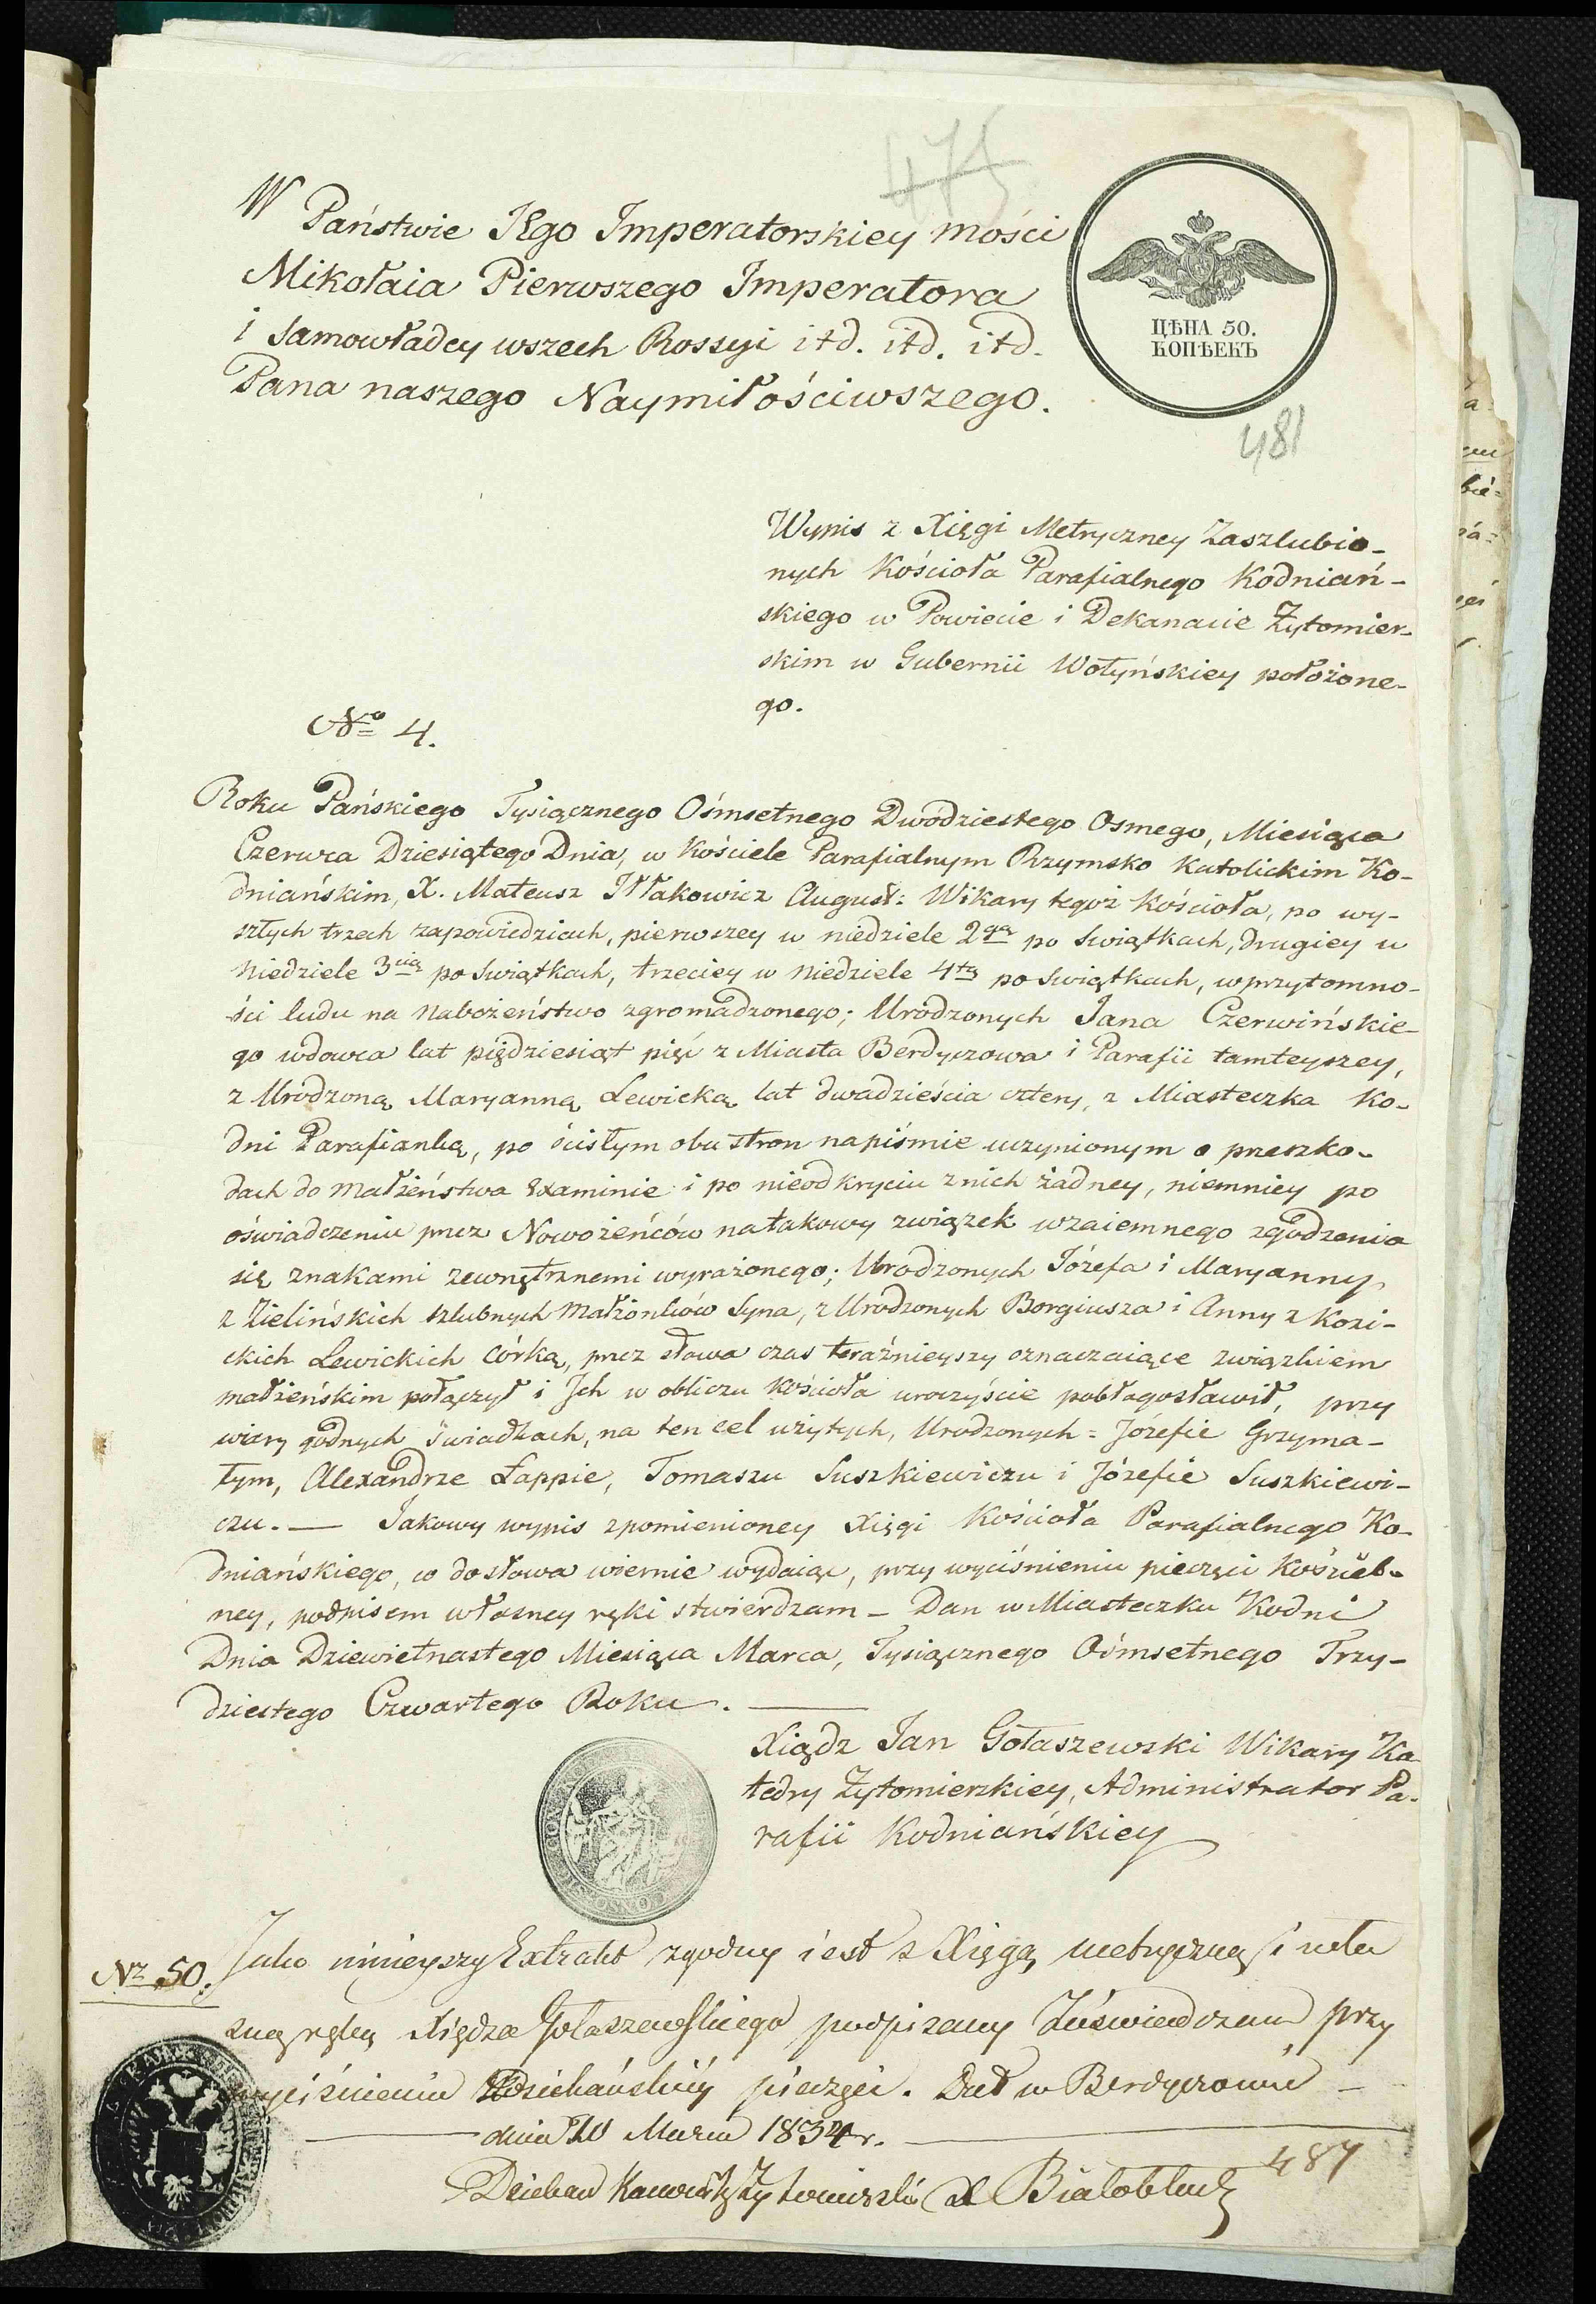 475
W Państwie JEgo Imperatorskiey mości
Mikołaia Pierwszego Imperatora
i Samowładcy wszech Rossyi itd. itd. itd.
Pana naszego Naymiłościwszego.
ЦѢНА 50.
КОПѢЕКЪ
481
Wypis z Xięgi Metryczney Zaszlubio-
nych Kościoła Parafialnego Kodniań-
skiego w Powiecie i Dekanacie Żytomier-
skim w Gubernii Wołyńskiey położone-
go.
No 4.
Roku Pańskiego Tysiącznego Ośmsetnego Dwódziestego Osmego, Miesiąca
Czerwca Dziesiątego Dnia, w Kościele Parafialnym Rzymsko Katolickim Ko-
dniańskim, X. Mateusz Iłłakowicz August: Wikary tegoż Kościoła, po wy-
szłych trzech zapowiedziach, pierwszey w niedziele 2gą po Swiątkach, drugiey w
Niedziele 3cią po Swiątkach, trzeciey w Niedziele 4tą po Swiątkach, w przytomno-
ści ludu na Nabożeństwo zgromadzonego; Urodzonych Jana Czerwińskie-
go wdowca lat piędziesiąt pięć z Miasta Berdyczowa i Parafii tamteyszey,
z Urodzoną Maryanną Lewicką lat dwadzieścia cztery, z Miasteczka Ko-
dni Parafianką, po ścisłym obu stron na piśmie uczynionym o przeszko-
dach do Małżeństwa Examinie i po nieodkryciu z nich żadney, niemniey po
oświadczeniu przez Nowożeńców na takowy związek wzaiemnego zgodzenia
się znakami zewnętrznemi wyrażonego; Urodzonych Józefa i Maryanny
z Zielińskich szlubnych Małżonków Syna, z Urodzonych Borgiusza i Anny z Kozi-
ckich Lewickich Córką, przez słowa czas teraźnieyszy oznaczaiące związkiem
małżeńskim połączył i Ich w obliczu Kościoła uroczyście pobłagosławił, przy
wiary godnych Świadkach, na ten cel użytych, Urodzonych = Józefie Grzyma-
łym, Alexandrze Łappie, Tomaszu Suszkiewiczu i Józefie Suszkiewi-
czu. — Jakowy wypis zpomienioney Xięgi Kościoła Parafialnego Ko-
dniańskiego, co do słowa wiernie wydaiąc, przy wyciśnieniu pieczęci Kościel-
ney, podpisem własney ręki stwierdzam — Dan w Miasteczku Kodni
Dnia Dziewietnastego Miesiąca Marca, Tysiącznego Ośmsetnego Trzy-
dziestego Czwartego Roku.
Xiądz Jan Gołaszewski Wikary Ka-
tedry Żytomierskiey, Administrator Pa-
rafii Kodniańskiey
Nr 50. Jako ninieyszy Extrakt zgodny iest z Xięgą metryczną i wła
sną ręką Xiędza Gołaszewskiego podpisany Zaświadczam przy
wyciśnieniu Dziekańskiéy pieczęci. Dat w Berdyczowie —
dnia 20 Marca 1834 r.
Dziekan Żytomirski X Białobłocki
487